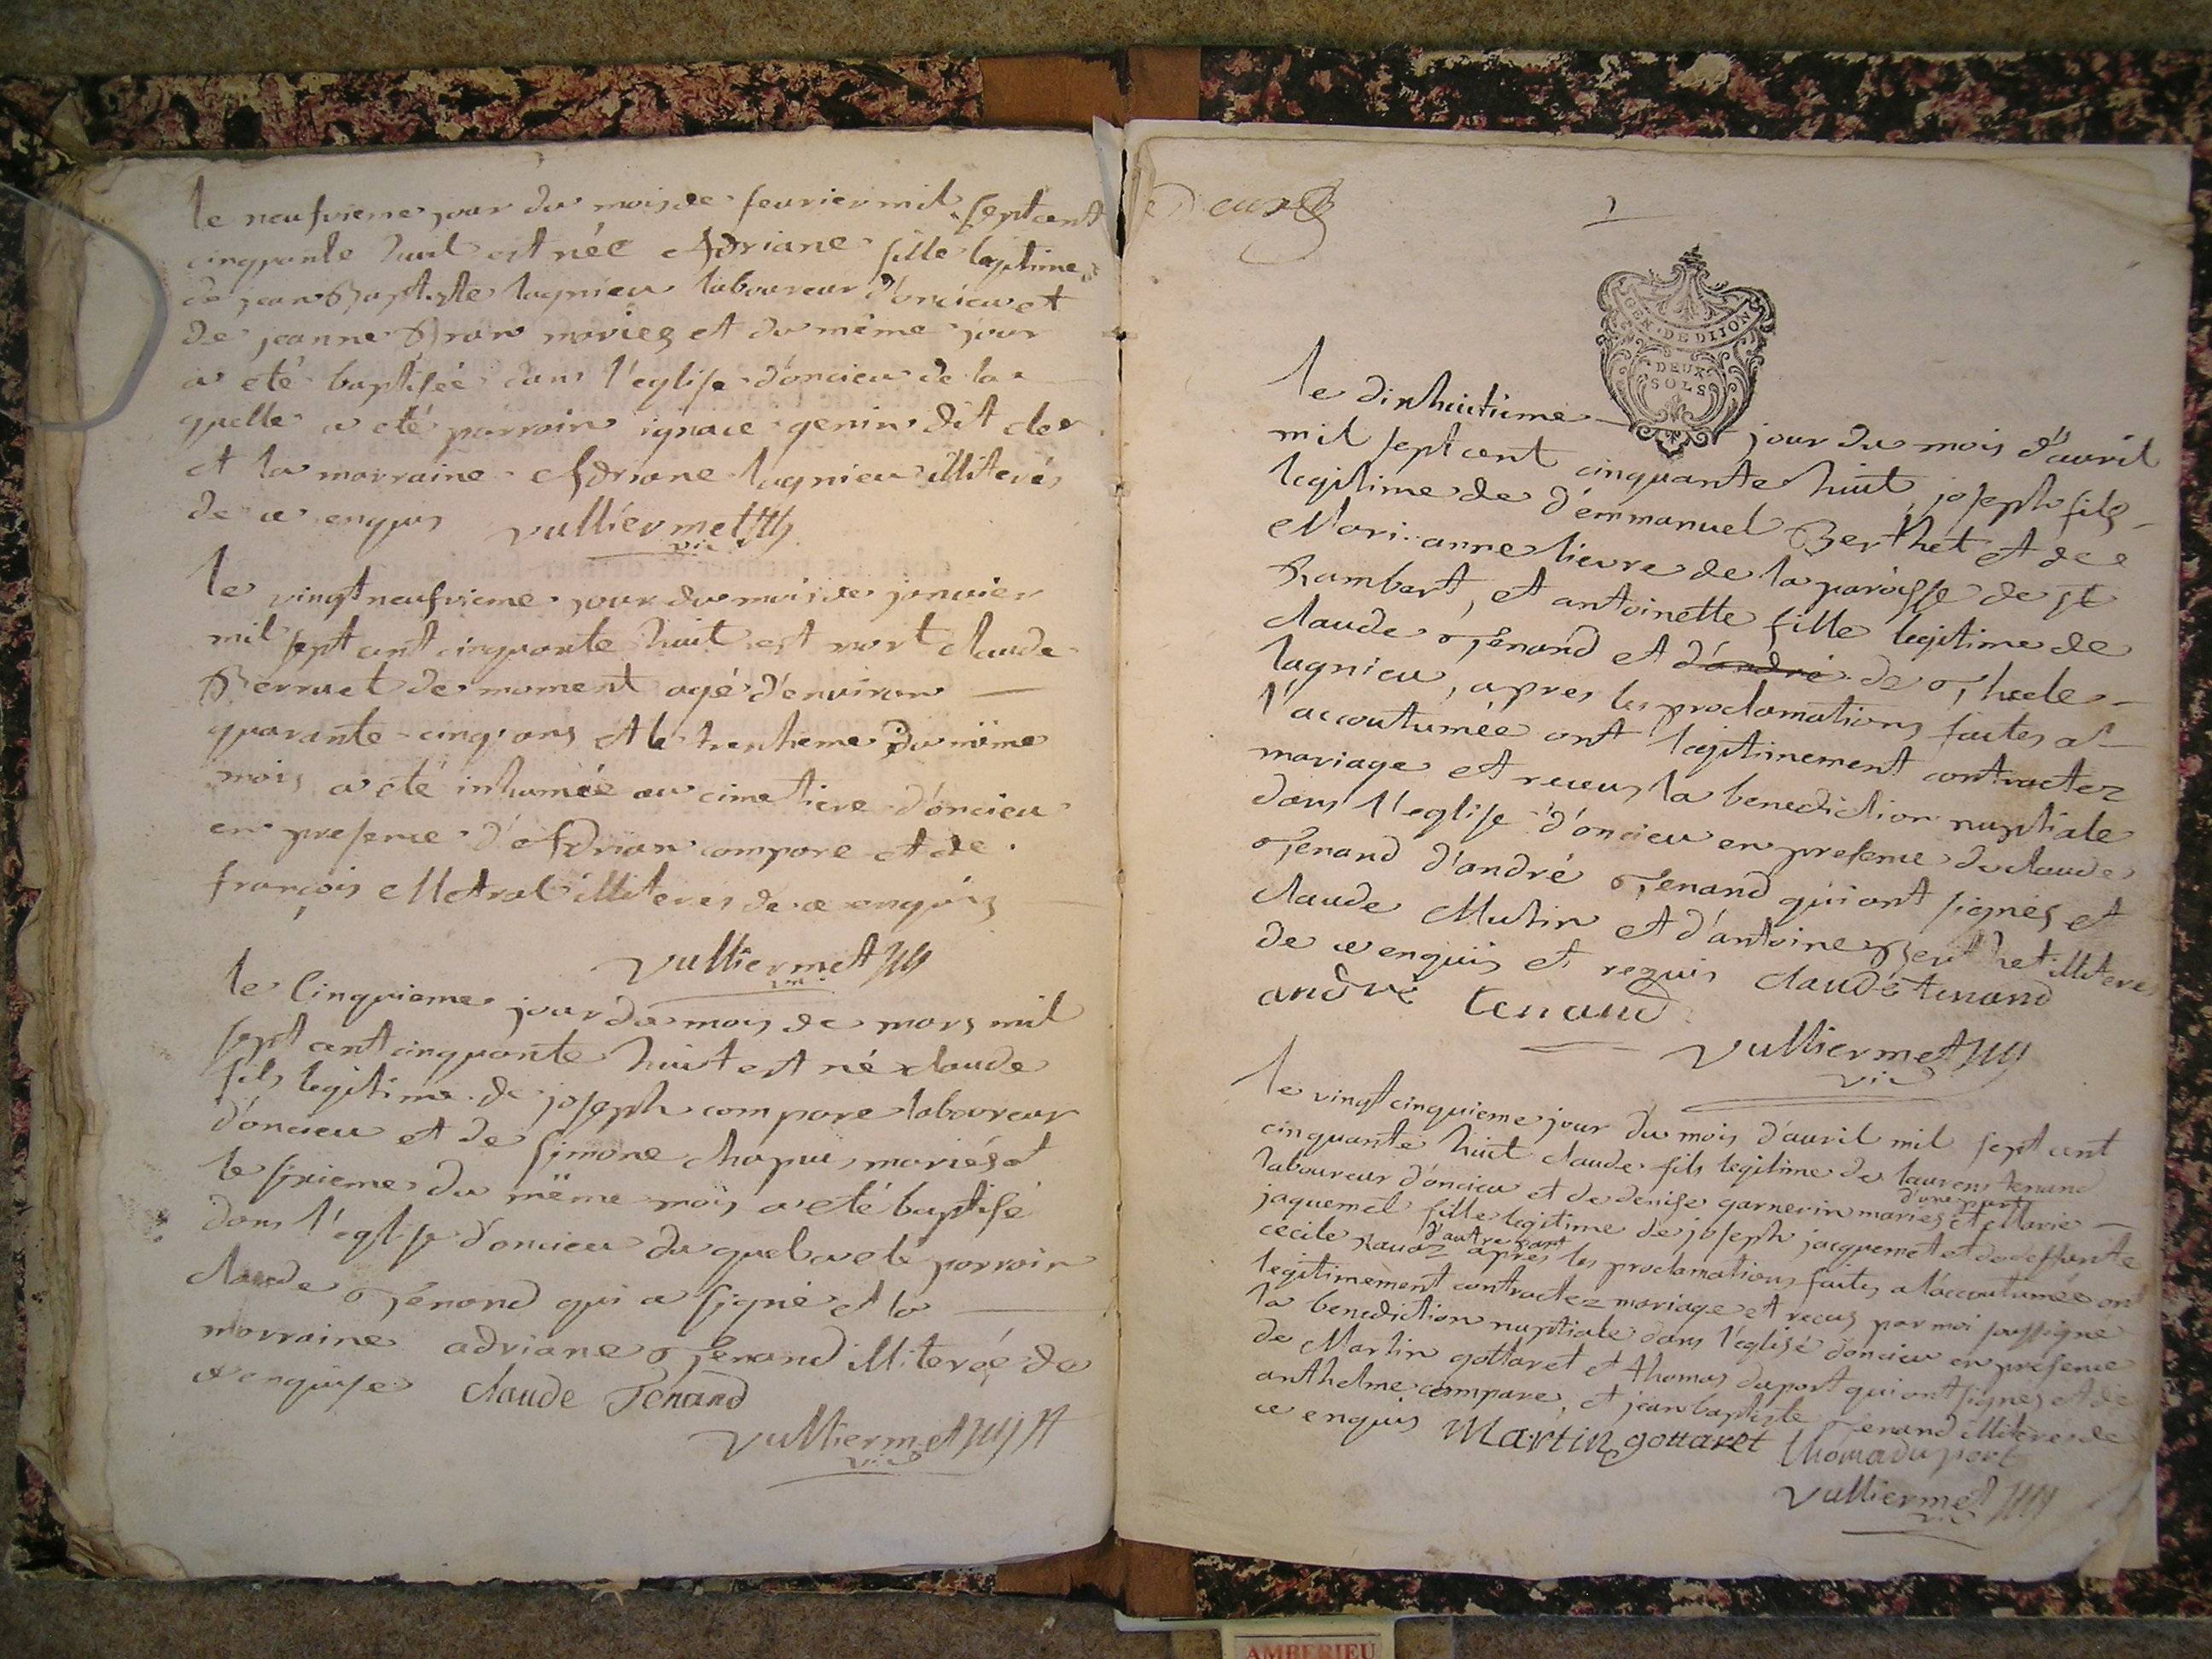 le neufvieme jour du mois de fevrier mil sept cent
cinquante huit est née Adriane fille legitime
de jean Baptiste lagnieu laboureur d'oncieu et
de jeanne Bron mariés et du même jour
a eté baptisée dans l'eglise d'oncieu de la
quelle a eté parrain ignace genin dit cler
et la marraine Adriane lagnieu illiterés
de ce enquis vulliermet
vic
le vingt neufvieme jour du mois de janvier
mil sept cent cinquante huit est mort claude
Berruet de moment agé d'environ
quarante-cinq ans et le trentieme du même
mois a eté inhumée au cimetiere d'oncieu
en presence d'Adrian compare et de
françois Metral illiteres de ce enquis
vulliermet
vic
le Cinquieme jour du mois de mars mil
sept cent cinquante huit est né claude
fils legitime de joseph compare laboureur
d'oncieu et de simone chapuis mariés et
le sixieme du même mois a eté baptisé
dans l'eglise d'oncieu du quel a eté parrain
claude Tenand qui a signé et la
marraine adriane Tenand illiterée de
ce enquise claude Tenand
vulliermet
vic
deux
2
GEN. DE DIJON
DEUX
SOLS
le dixhuitieme jour du mois d'avril
mil sept cent cinquante huit, joseph fils
legitime de d'emmanuel Berthet et de
Marianne lievre de la paroisse de st
Rambert, et antoinette fille legitime de
claude Tenand et d'andré de Thecle
lagnieu, apres les proclamations faites a
l'accoutumée ont legitimement contractez
mariage et receus la benediction nuptiale
dans l'eglise d'oncieu en presence de claude
Tenand d'andré Tenand qui ont signés et
claude Mutin et d'antoine Berthet illiteres
de ce enquis et requis claude tenand
andré tenand
vulliermet
vic
le vingt cinquieme jour du mois d'avril mil sept cent
cinquante huit claude fils legitime de laurens tenand
laboureur d'oncieu et de denise garnerin mariés d'une part et Marie
jaquemet fille legitime de joseph jacquemet et de deffunte
cecile Ravoz d'autre part apres les proclamations faites a l'accoutumée ont
legitimement contractez mariage et reçus par moi soussigné
la benediction nuptiale dans l'eglise d'oncieu en presence
de Martin gottaret et thomas duport qui ont signes et de
anthelme compare, et jean baptiste Tenand illiteres de
ce enquis Martin gottaret thoma du port
vulliermet
vic
AMBERIEU